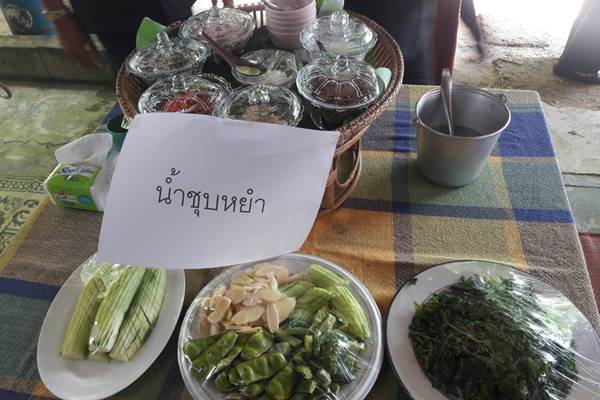 น้ำชุบหยำ